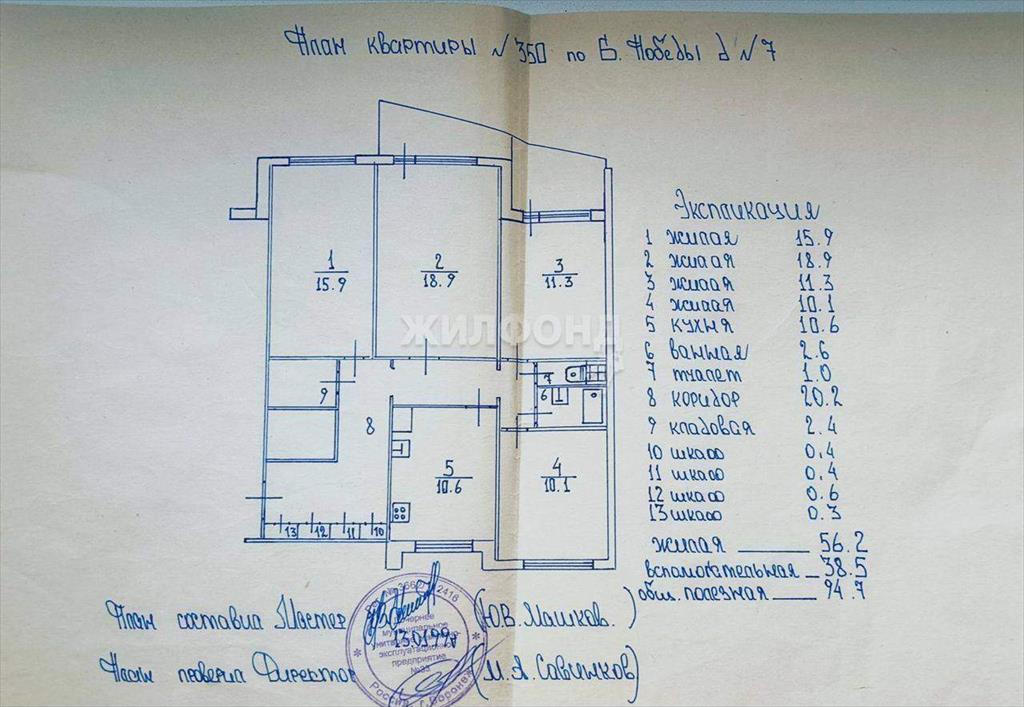 План квартиры № 350 по Б. Победы д № 7
Экспликация
1 жилая 15.9
2 жилая 18.9
3 жилая 11.3
4 жилая 10.1
5 кухня 10.6
6 ванная 2.6
7 туалет 1.0
8 коридор 20.2
9 кладовая 2.4
10 шкаф 0.4
11 шкаф 0.4
12 шкаф 0.6
13 шкаф 0.3
жилая 56.2
вспомогательная 38.5
общ. полезная 94.7
1
15.9
2
18.9
3
11.3
ЖИЛФОНД
7
6
9
8
5
10.6
4
10.1
13 12 11 10
План составил Мастер (Ю.В. Машков.)
13.01.99г
План проверил Директор (М.А. Савинков)
муниципальное
эксплуатационное
предприятие
№33
Россия г. Воронеж